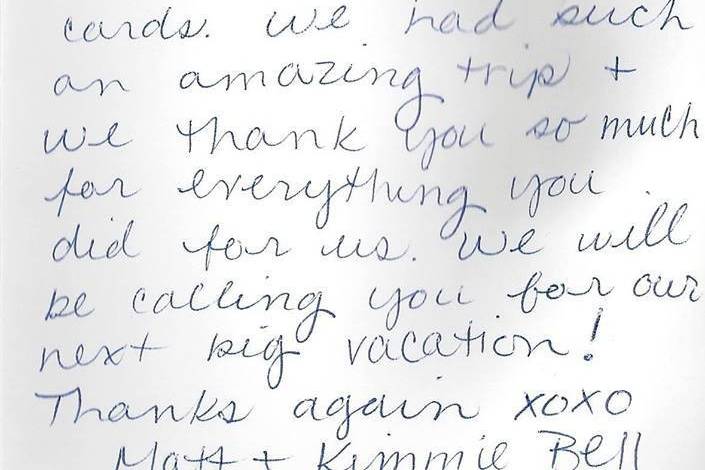 cards. We had such
an amazing trip +
we thank you so much
for everything you
did for us. We will
be calling you for our
next big vacation!
Thanks again xoxo
Matt + Kimmie Bell